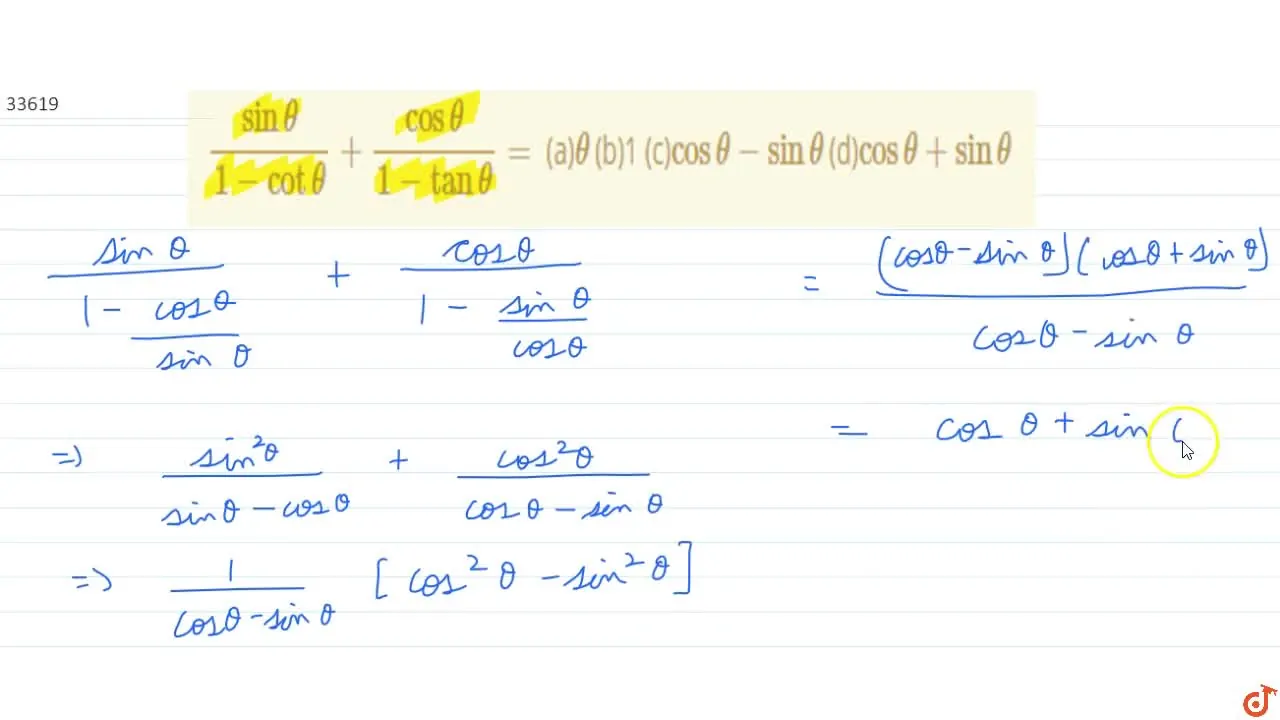 33619
sinθ/(1 − cotθ) + cosθ/(1 − tanθ) = (a)θ(b)1 (c)cosθ − sinθ(d)cosθ + sinθ
sin θ/(1 - cosθ/sin θ) + cosθ/(1 - sin θ/cosθ)
=> sin²θ/(sinθ - cosθ) + cos²θ/(cosθ - sin θ)
=> 1/(cosθ - sinθ) [cos²θ - sin²θ]
= (cosθ - sin θ)(cosθ + sinθ)/(cosθ - sin θ)
= cos θ + sin